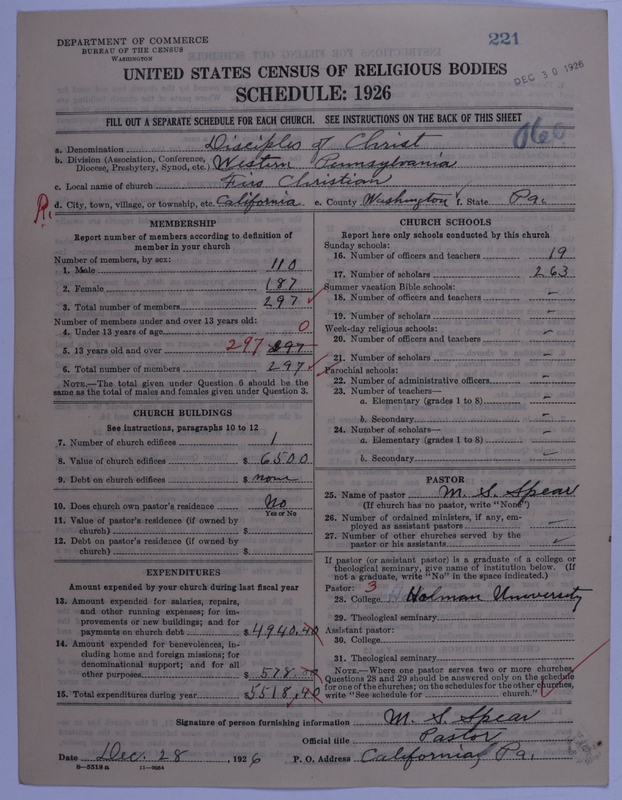 DEPARTMENT OF COMMERCE
BUREAU OF THE CENSUS
WASHINGTON
221
DEC 30 1926
UNITED STATES CENSUS OF RELIGIOUS BODIES
SCHEDULE: 1926
FILL OUT A SEPARATE SCHEDULE FOR EACH CHURCH. SEE INSTRUCTIONS ON THE BACK OF THIS SHEET
060
a. Denomination Disciples of Christ
b. Division (Association, Conference, Diocese, Presbytery, Synod, etc.) Western Pennsylvania
c. Local name of church Firs Christian
R. d. City, town, village, or township, etc. California e. County Washington f. State Pa.
MEMBERSHIP
Report number of members according to definition of
member in your church
Number of members, by sex:
1. Male 110
2. Female 187
3. Total number of members 297
Number of members under and over 13 years old:
4. Under 13 years of age 0
5. 13 years old and over 297 297
6. Total number of members 297
NOTE.—The total given under Question 6 should be the
same as the total of males and females given under Question 3.
CHURCH BUILDINGS
See instructions, paragraphs 10 to 12
7. Number of church edifices 1
8. Value of church edifices $ 6500
9. Debt on church edifices $ none
10. Does church own pastor's residence No
Yes or No
11. Value of pastor's residence (if owned by
church) $
12. Debt on pastor's residence (if owned by
church) $
EXPENDITURES
Amount expended by your church during last fiscal year
13. Amount expended for salaries, repairs,
and other running expenses; for im-
provements or new buildings; and for
payments on church debt $ 4940.40
14. Amount expended for benevolences, in-
cluding home and foreign missions; for
denominational support; and for all
other purposes $ 578.00
15. Total expenditures during year $ 5518.40
CHURCH SCHOOLS
Report here only schools conducted by this church
Sunday schools:
16. Number of officers and teachers 19
17. Number of scholars 263
Summer vacation Bible schools:
18. Number of officers and teachers –
19. Number of scholars –
Week-day religious schools:
20. Number of officers and teachers –
21. Number of scholars –
Parochial schools:
22. Number of administrative officers –
23. Number of teachers—
a. Elementary (grades 1 to 8) –
b. Secondary –
24. Number of scholars—
a. Elementary (grades 1 to 8) –
b. Secondary –
PASTOR
25. Name of pastor M. S. Spear
(If church has no pastor, write "None")
26. Number of ordained ministers, if any, em-
ployed as assistant pastors –
27. Number of other churches served by the
pastor or his assistants –
If pastor (or assistant pastor) is a graduate of a college or
theological seminary, give name of institution below. (If
not a graduate, write "No" in the space indicated.)
Pastor: 3
28. College Holman University
29. Theological seminary
Assistant pastor:
30. College
31. Theological seminary
NOTE.—Where one pastor serves two or more churches,
Questions 28 and 29 should be answered only on the schedule
for one of the churches; on the schedules for the other churches,
write "See schedule for church."
Signature of person furnishing information M. S. Spear
Official title Pastor
Date Dec. 28, 1926 P. O. Address California, Pa.
8—5518a 11—9584